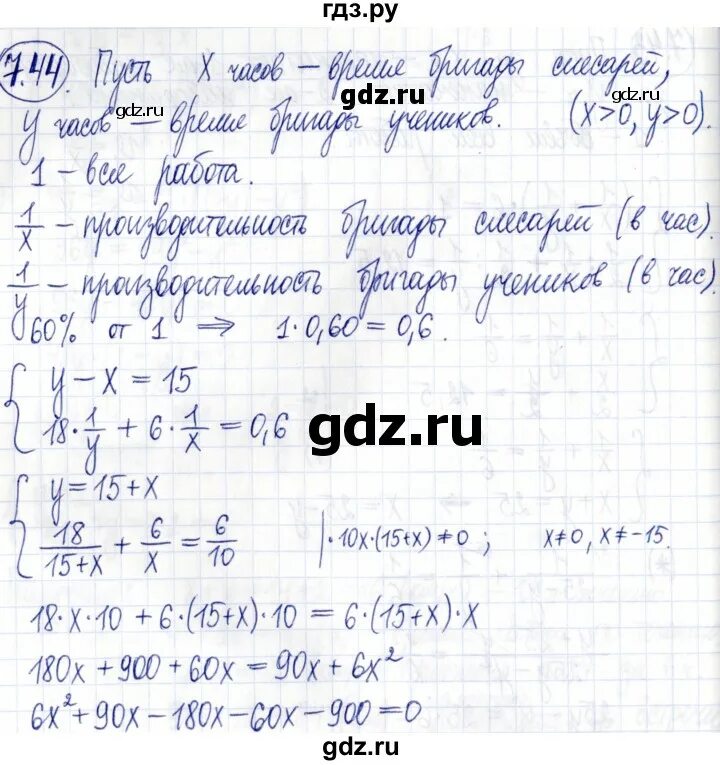 гдз.ру
7.44. Пусть X часов – время бригады слесарей,
gdz.ru gdz.ru gdz.ru
y часов – время бригады учеников. (x>0, y>0).
1 – вся работа.
1/x – производительность бригады слесарей (в час).
1/y – производительность бригады учеников (в час).
60% от 1 ⇒ 1·0,60=0,6.
{ y – x = 15
18·1/y + 6·1/x = 0,6
gdz.ru
{ y = 15+x
18/(15+x) + 6/x = 6/10 |·10x·(15+x)≠0; x≠0, x≠-15.
18·x·10 + 6·(15+x)·10 = 6·(15+x)·x
180x + 900 + 60x = 90x + 6x²
gdz.ru gdz.ru
6x² + 90x – 180x – 60x – 900 = 0
gdz.ru